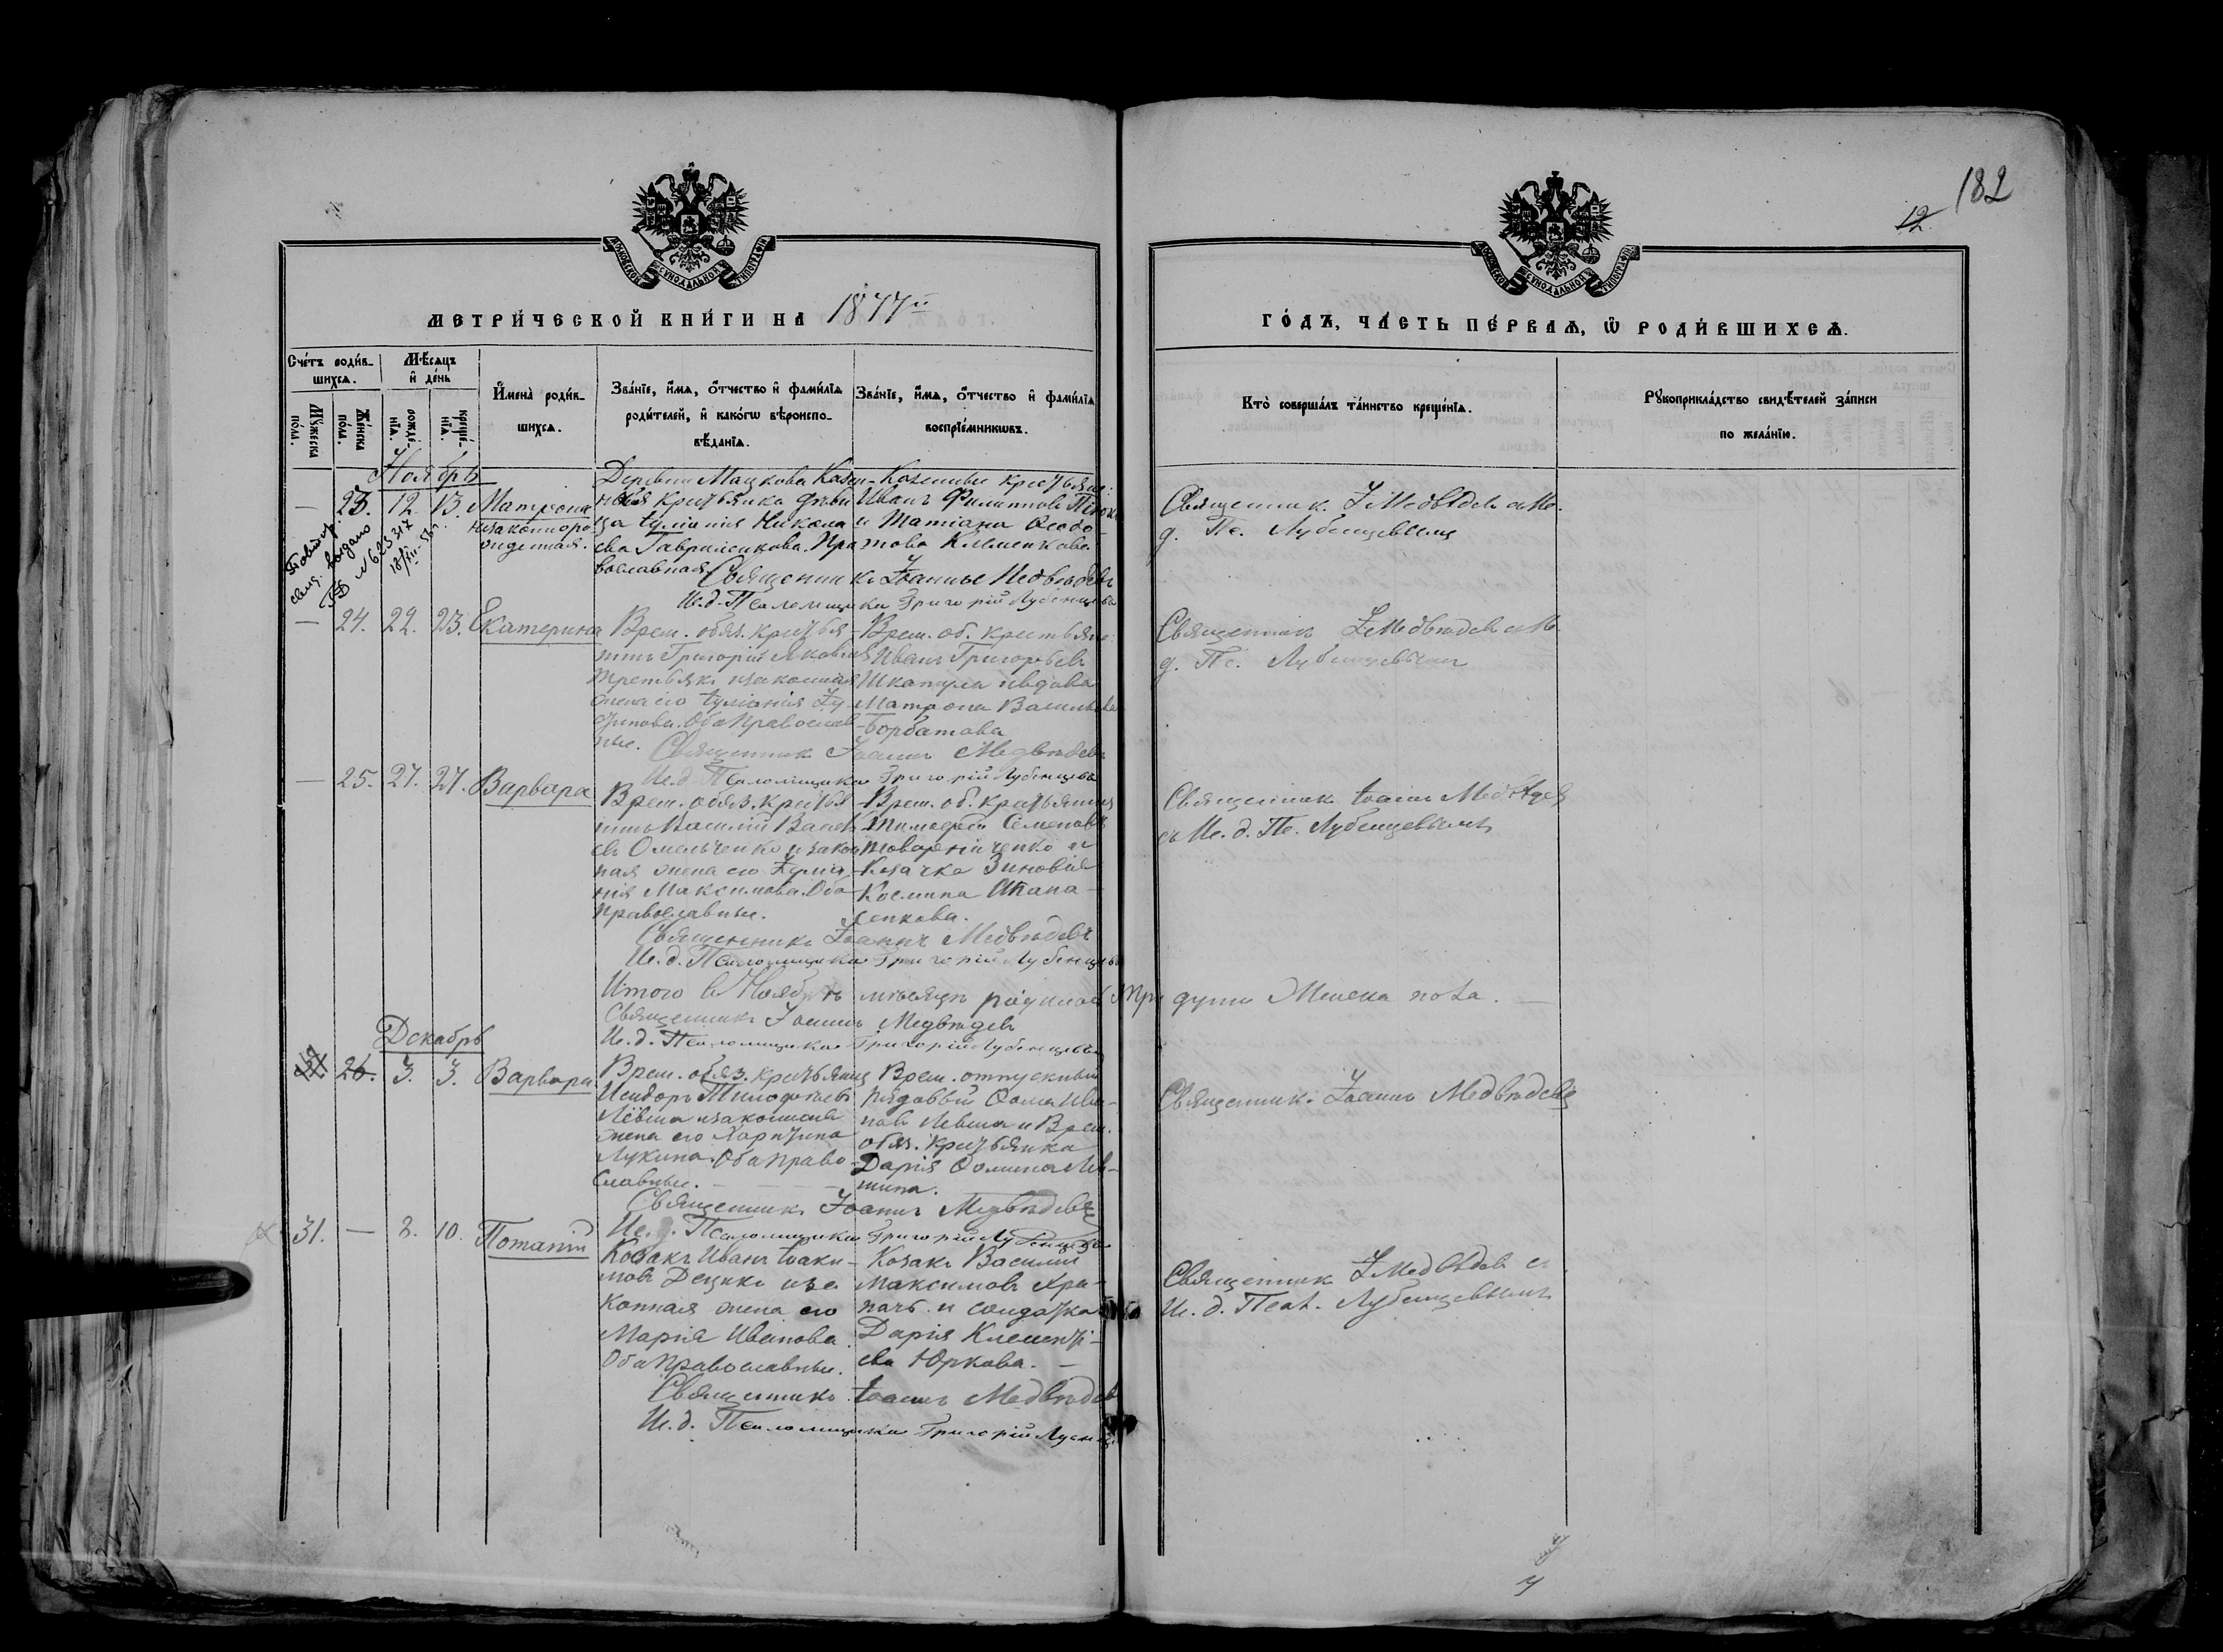 182
12.
МОСКОВСКОЙ СѴНОДАЛЬНОЙ ТИПОГРАФІИ
МОСКОВСКОЙ СѴНОДАЛЬНОЙ ТИПОГРАФІИ
МЕТРИ́ЧЕСКОЙ КНИ́ГИ НА 1877й
ГО́ДЪ, ЧА́СТЬ ПЕ́РВАѦ, Ѿ РОДИ́ВШИХСѦ.
Сче́тъ роди́в-
шихсѧ.
Мѣ́сѧцъ
и҆ де́нь
Мꙋ́жеска
по́ла.
Же́нска
по́ла.
рожде́-
нїѧ.
креще́-
нїѧ.
И҆мена̀ роди́в-
шихсѧ.
Зва́нїе, и҆́мѧ, ѻ҆́тчество и҆ фами́лїѧ
роди́телей, и҆ како́гѡ вѣроиспо-
вѣ́данїѧ.
Зва́нїе, и҆́мѧ, ѻ҆́тчество и҆ фами́лїѧ
воспрїе́мникѡвъ.
Кто̀ соверша́лъ та́инство креще́нїѧ.
Рꙋкоприкла́дство свидѣ́телей за́писи
по жела́нїю.
Ноябрь
— 23. 12. 13. Матрона
незаконоро
жденная.
Деревни Мацкова Казен-
ная крестьянка дѣви
ца Іуліанія Никола
ева Гавриленкова. Пра
вославная
Казенные крестьяне:
Иванъ Филиповъ
и Татіана Ѳеодо
това Клименкова.
Священникъ І. Медвѣдевъ съ Ис.
д. Пс. Лубенцевымъ
Повтор.
свид. выдано
Священникъ Іоаннъ Медвѣдевъ
Ис. д. Псаломщика Григорій Лубенцевъ
— 24. 22. 23. Екатерина
Врем. обяз. крестья
нинъ Григорій Яковлевъ
Третьякъ и законная
жена его Іуліанія
Оба Православ
ные.
Врем. об. крестьяне:
Иванъ Григорьевъ
Шкатула и вдова
Матрона Васильева
Горбатова
Священникъ І. Медвѣдевъ съ Ис.
д. Пс. Лубенцевымъ
Священникъ Іоаннъ Медвѣдевъ
Ис. д. Псаломщика Григорій Лубенцевъ
— 25. 27. 27. Варвара
Врем. обяз. крестья
нинъ Василій Василь
евъ Омельченко и закон
ная жена его Іуліа
нія Максимова. Оба
православные.
Врем. об. крестьянинъ
Тимоѳей Семеновъ
Товарниченко и
Козачка Зиновія
Козмина Апана-
сенкова.
Священникъ Іоаннъ Медвѣдевъ
съ Ис. д. Пс. Лубенцевымъ
Священникъ Іоаннъ Медвѣдевъ
Ис. д. Псаломщика Григорій Лубенцевъ
Итого въ Ноябрѣ мѣсяцѣ родилось три души Женска пола. —
Священникъ Іоаннъ Медвѣдевъ
Ис. д. Псаломщика Григорій Лубенцевъ
Декабрь
26. 3. 3. Варвара
Врем. обяз. крестьянинъ
Исидоръ Тимоѳеевъ
Лёвша и законная
жена его Харитина
Лукина. Оба право-
славные.
Врем. отпускный
рядовый Ѳома Ива-
новъ Левша и Врем.
обяз. крестьянка
Дарія Ѳомина Лев-
шина.
Священникъ Іоаннъ Медвѣдевъ
Священникъ Іоаннъ Медвѣдевъ
Ис. д. Псаломщика Григорій Лубенцевъ
31. — 2. 10. Потапій
Козакъ Иванъ Іоаки-
мовъ Децикъ и за
конная жена его
Марія Иванова.
Оба православные.
Козакъ Василій
Максимовъ Хра-
пачь и солдатка
Дарія Клементі-
ева Юркова. —
Священникъ І. Медвѣдевъ съ
Ис. д. Псал. Лубенцевымъ
Священникъ Іоаннъ Медвѣдевъ
Ис. д. Псаломщика Григорій Лубенцевъ